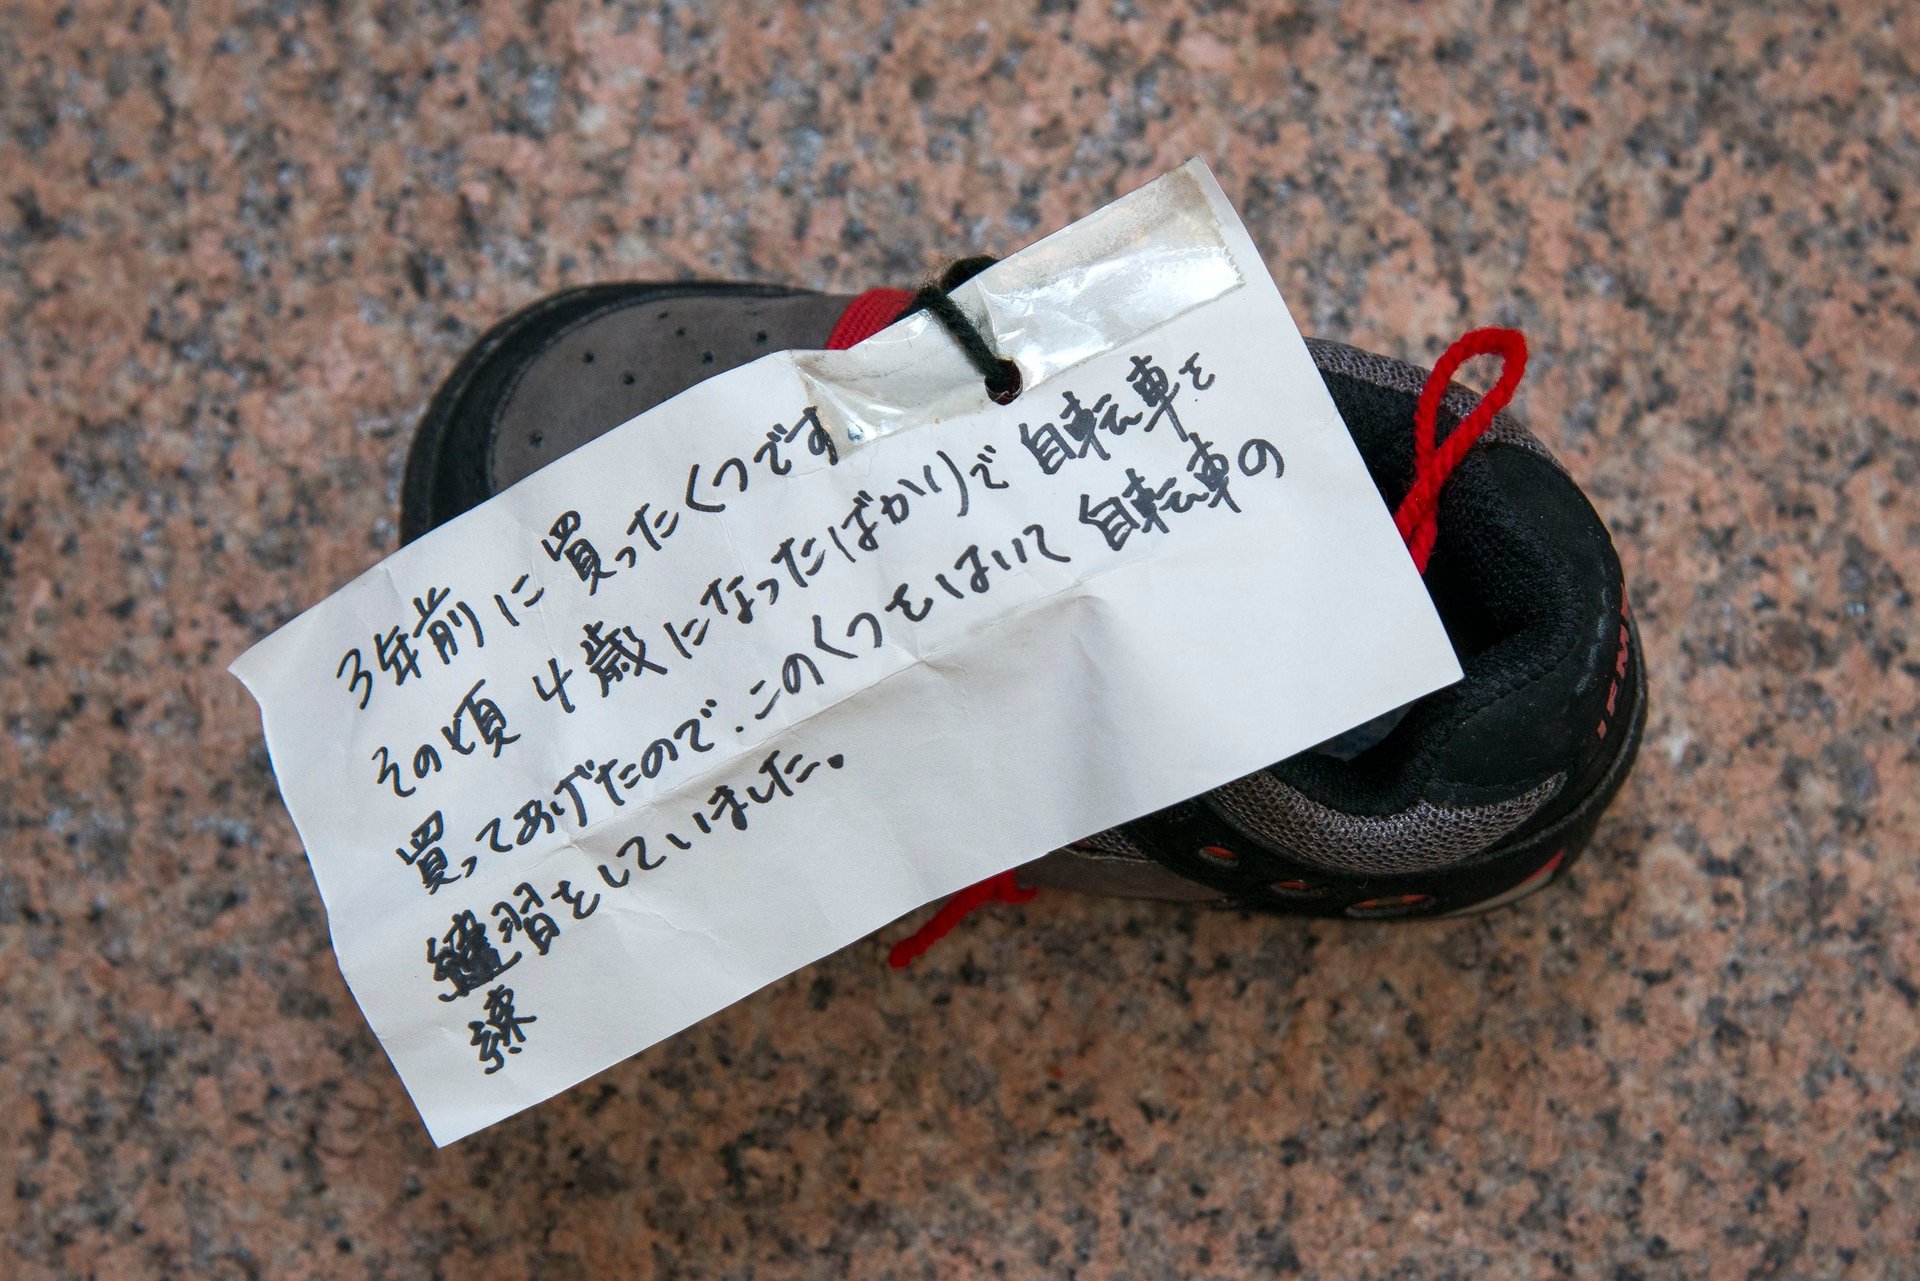 3年前に買ったくつです
その頃 4歳になったばかりで 自転車を
買ってあげたので、このくつをはいて 自転車の
習をしていました。
練
IFME